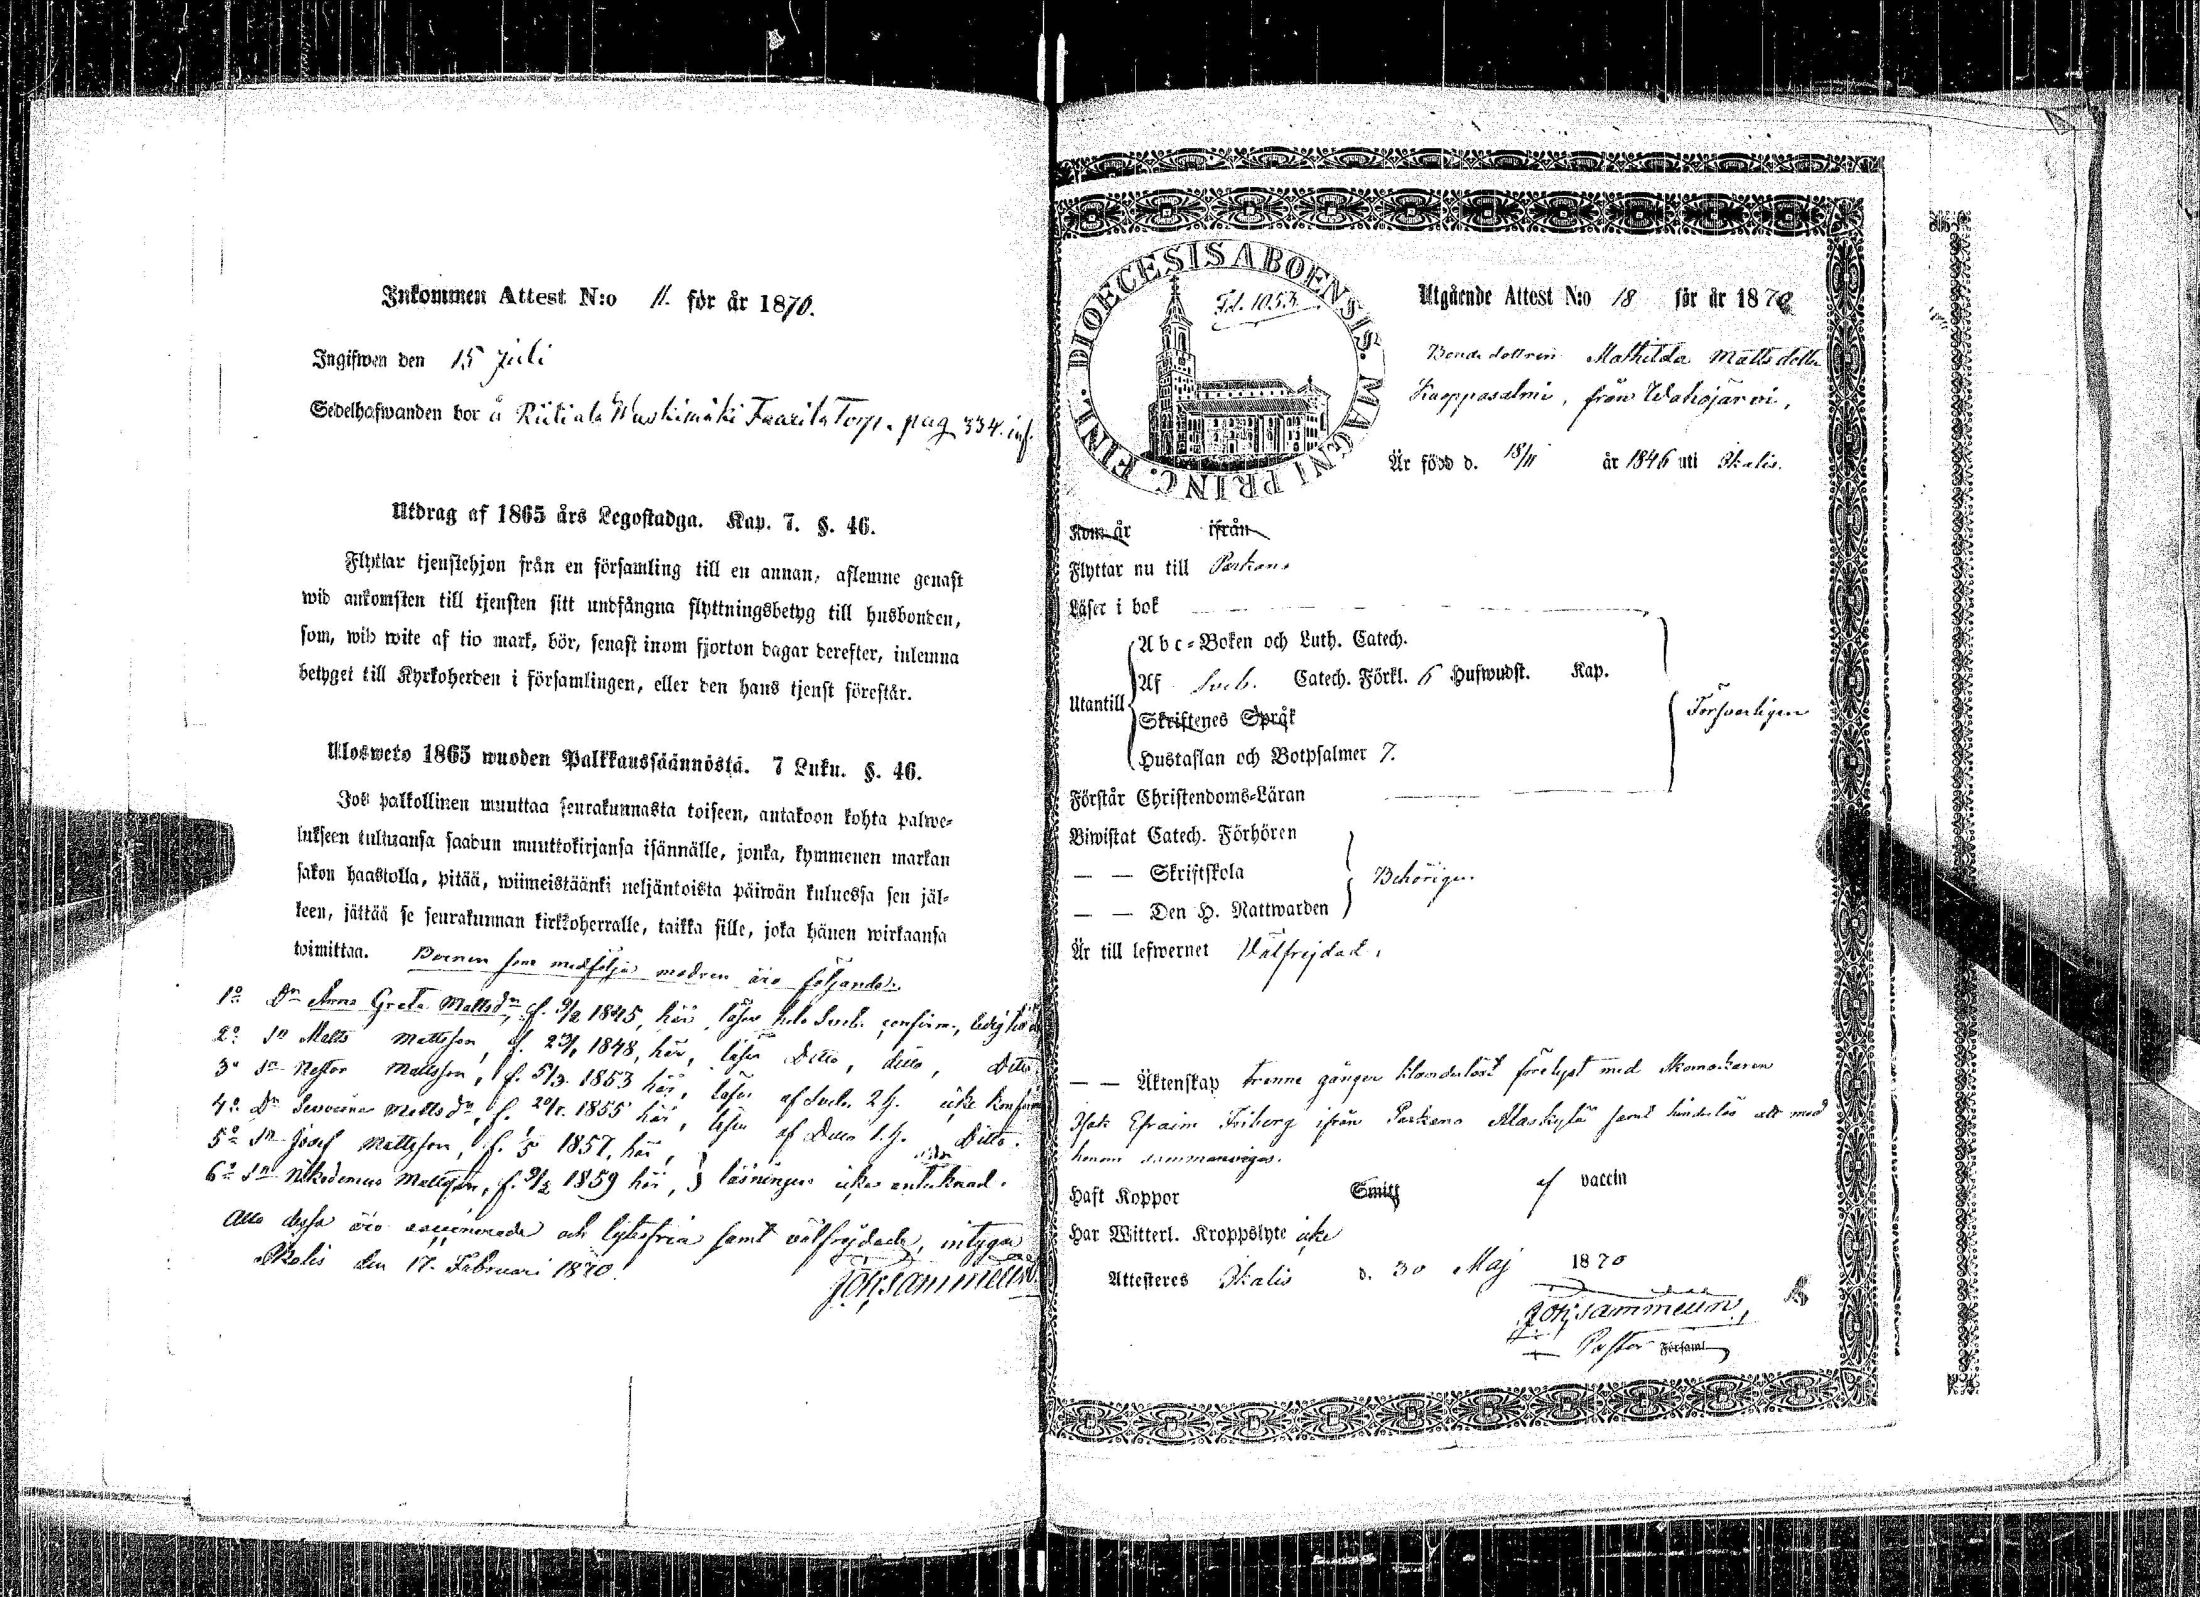 Inkommen Attest N:o 11. för år 1870.
Ingifwen den 15 Juli
Sedelhafwanden bor å Riitiala Wuskimäki Faarila Torp. pag 334. inf.
Utdrag af 1865 års Legostadga. Kap. 7. §. 46.
Flyttar tjenstehjon från en församling till en annan, aflemne genast
wid ankomsten till tjensten sitt undfångna flyttningsbetyg till husbonden,
som, wid wite af tio mark, bör, senast inom fjorton dagar derefter, inlemna
betyget till Kyrkoherden i församlingen, eller den hans tjenst förestår.
Ulosweto 1865 wuoden Palkkaussäännöstä. 7 Luku. §. 46.
Jos palkollinen muuttaa seurakunnasta toiseen, antakoon kohta palwe-
lukseen tultuansa saadun muuttokirjansa isännälle, jonka, kymmenen markan
sakon haastolla, pitää, wiimeistäänki neljäntoista päiwän kuluessa sen jäl-
keen, jättää se seurakunnan kirkkoherralle, taikka sille, joka hänen wirkaansa
toimittaa. Barnen som medfölja modren äro följande:
1:o Dr Anna Greta Mattsdr, f. 9/2 1845, här, läser hela Sveb. confirm., ledig
2:o Sn Matts Mattsson, f. 1848, här, läser Ditto, ditto, Ditto
3:o Sn Nestor Mattsson, f. 5/3 1853 här, läser af Sveb. 2 H. icke
4:o Dr Mattsdr, f. 1855 här, läser af Ditto 1. H. Ditto.
5:o Sn Josef Mattsson, f. 1/5 1857, här,
6:o Sn Nikodemus Mattsson, f. 9/2 1859 här, } läsningen icke antecknad.
Alla dessa äro vaccinerade och lytesfria samt välfrejdade, intygar
Ikalis den 17 Februari 1870.
Joh. Sammelin
DIOECESIS ABOENSIS. MAGNI PRINC. FINL.
Fol. 1053.
Utgående Attest N:o 18 för år 1870
Bonde dottren Mathilda Mattsdotter
Kuoppasalmi, från Wahojärvi,
Är född d. 18/11 år 1846 uti Ikalis.
Kom år ifrån
Flyttar nu till Parkano
Läser i bok
Abc-Boken och Luth. Catech.
Utantill Af Sveb. Catech. Förkl. 6 Hufwudst. Kap.
Skriftenes Språk
Försvarligen
Hustaflan och Botpsalmer 7.
Förstår Christendoms-Läran
Biwistat Catech. Förhören
— — Skriftskola
Behörigen
— — Den H. Nattwarden
Är till lefwernet Välfrejdad.
— — Äktenskap trenne gånger klanderlöst förelyst med Skomakaren
Isak Efraim Friberg ifrån Parkano Alaskylä samt hinderlös att med
honom sammanvigas.
Haft Koppor Smitt af vaccin
Har Witterl. Kroppslyte icke
Attesteres Ikalis d. 30 Maj 1870
Joh. Sammelin,
Pastor Församl.